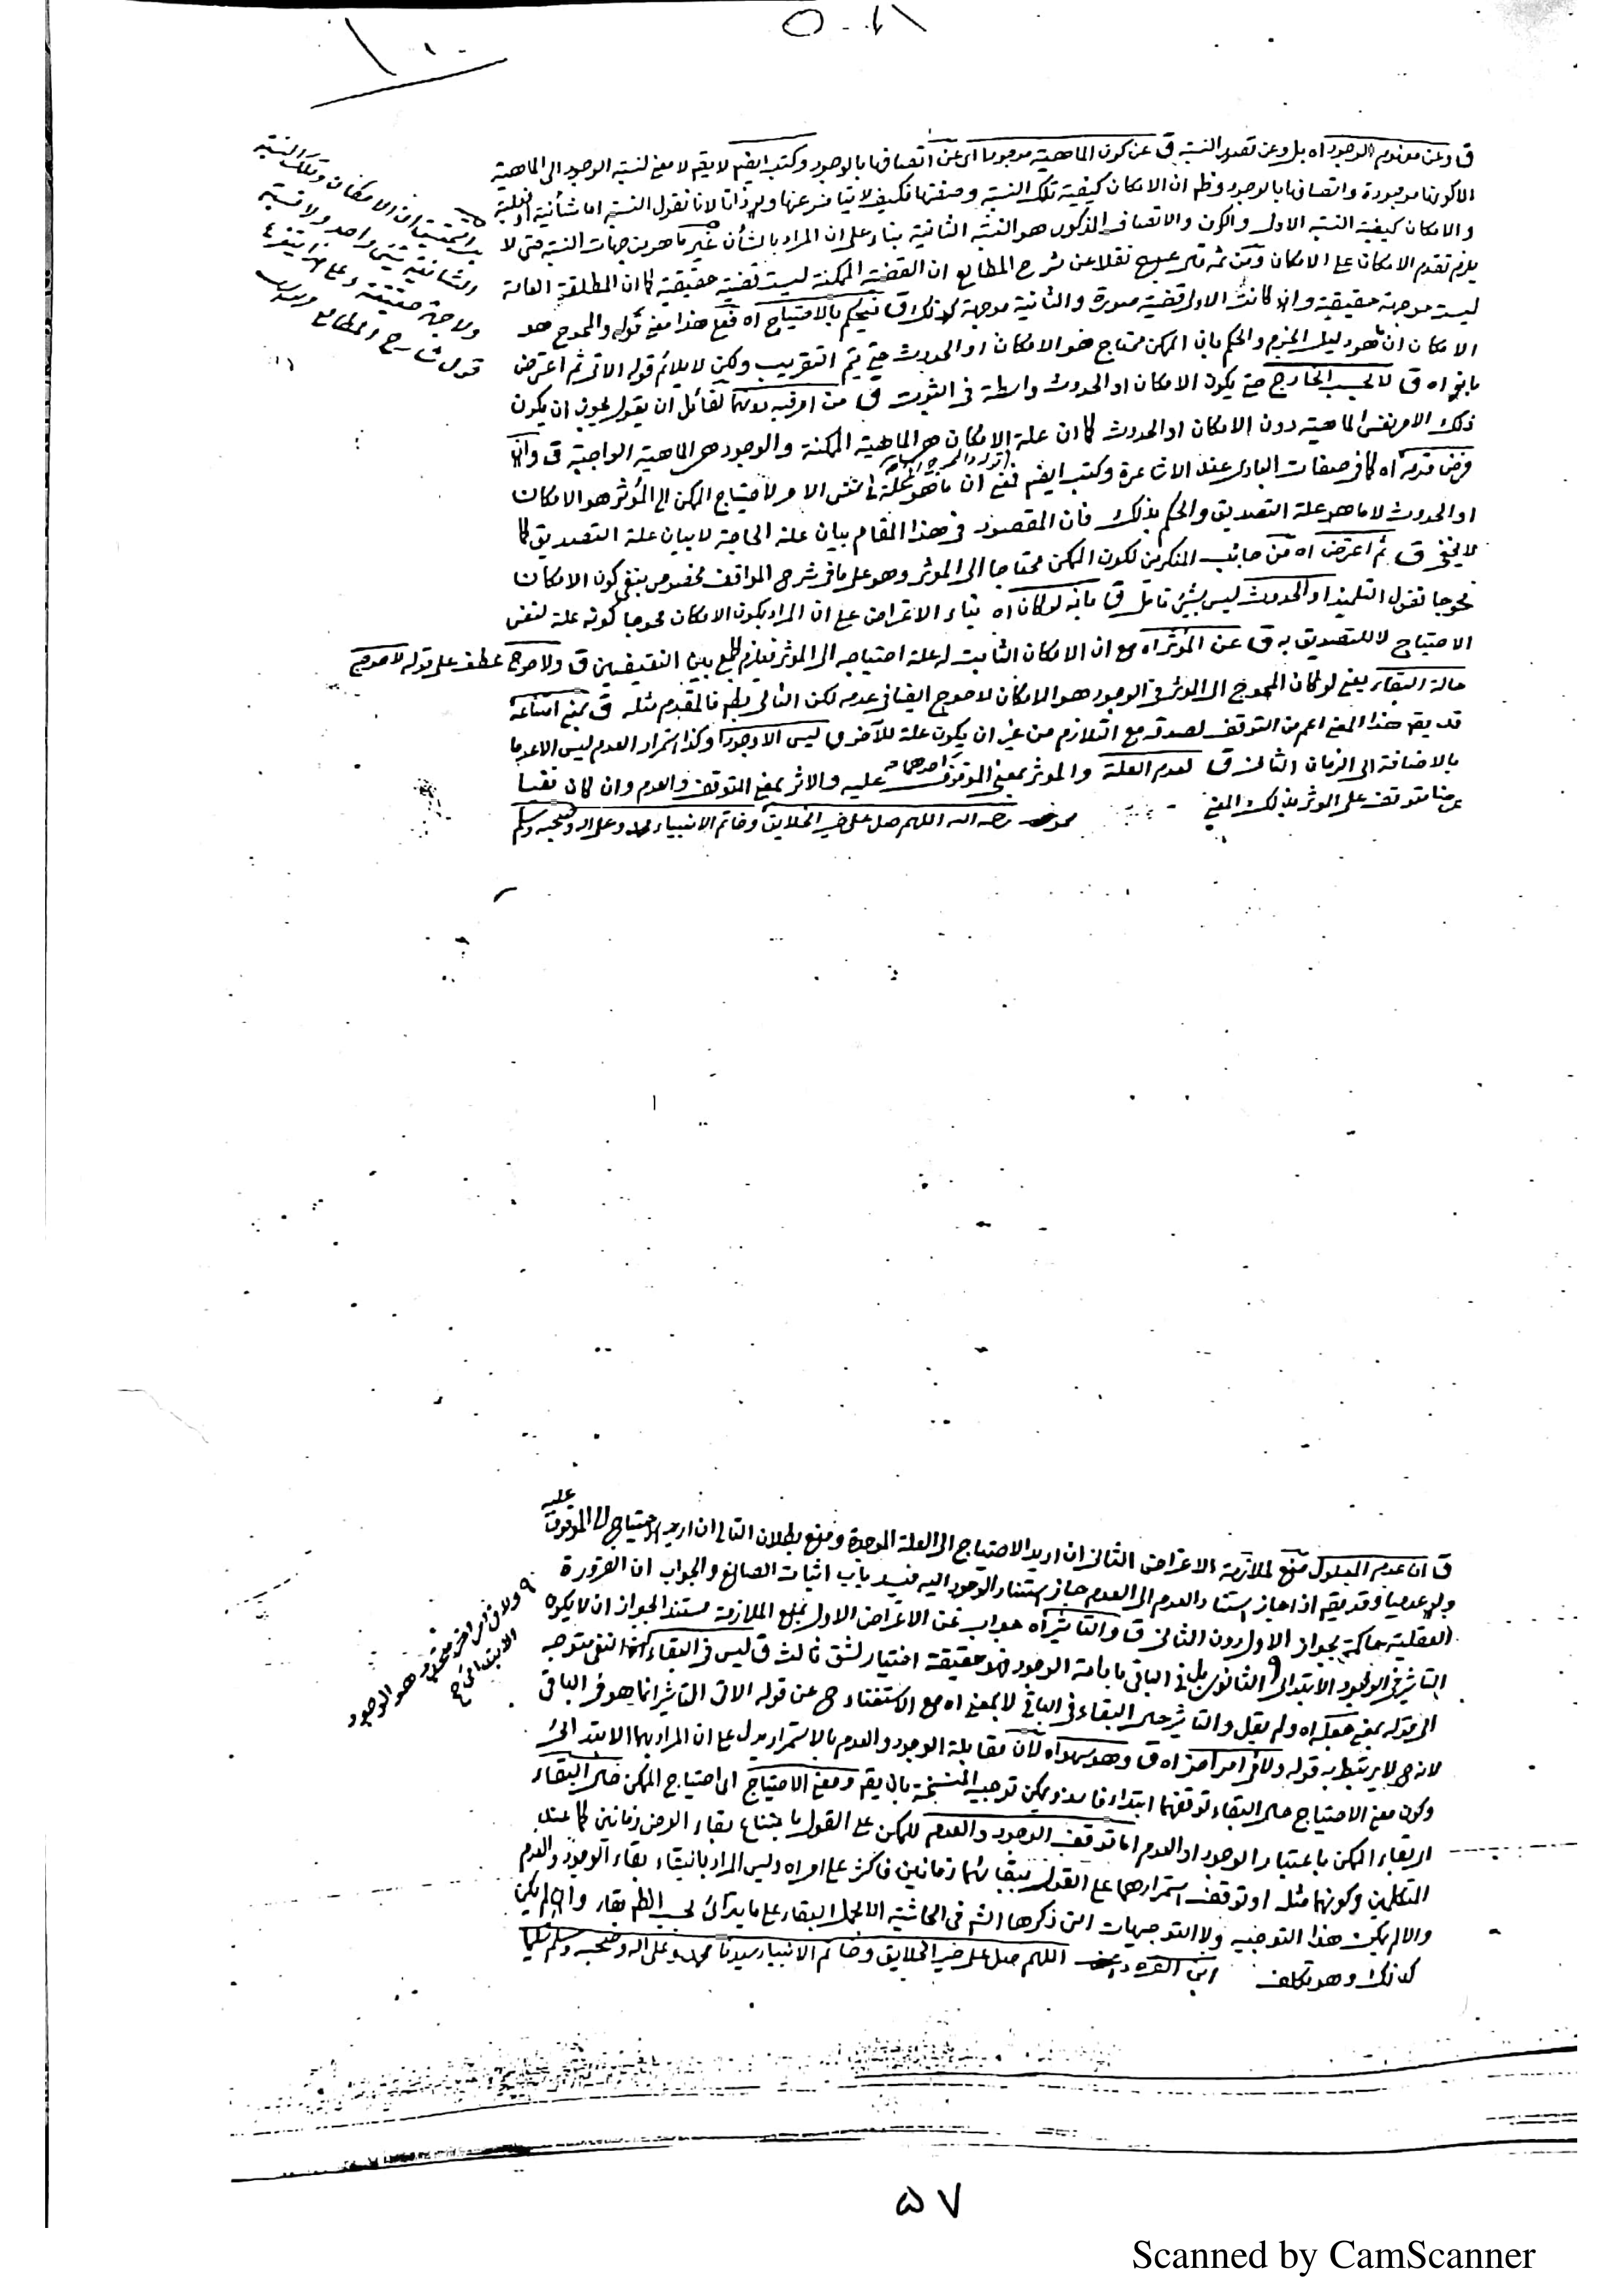 ق وعن مفهوم الوجود اه بل وعن تصور النسبة ق عن كون الماهية موجودا اى عن اتصافها بالوجود وكتب ايضم لا يقم لا معنى لنسبة الوجود الى الماهية
الا كونها موجودة واتصافها بالوجود وظم ان الامكان كيفية تلك النسبة وصفتها فكيف لا يتاخر عنها ذاتا لانا نقول النسبة اما شأنية او فعلية
والامكان كيفية النسبة الاولى والكون والاتصاف المذكور هو النسبة الثانية بناء على ان المراد بالشأن غير ما هو من جهات النسبة حتى لا
يلزم تقدم الامكان على الامكان ومن ثمه نقلا عن شرح المطالع ان القضية الممكنة ليست قضية حقيقية كما ان المطلقة العامة
ليست موجهة حقيقية وان كانت الاولى قضية صورة والثانية موجهة كذلك ق فيحكم بالاحتياج اه فعلى هذا معنى قوله والمحوج هو
الامكان ان ما هو دليل الجزم والحكم بان الممكن محتاج هو الامكان او الحدوث حتى يتم التقريب ولكن لا يلائم قوله الاتى ثم اعترض
بانه اه ق لا بحسب الخارج حتى يكون الامكان او الحدوث واسطة فى الثبوت ق من امر فيه لقائل ان يقول يجوز ان يكون
ذلك الامر نفس الماهية دون الامكان او الحدوث كما ان علة الامكان هى الماهية الممكنة والوجود هى الماهية الواجبة ق وان
فرض قدمه اه كما فى صفات البارى عند الاشاعرة وكتب ايضم فعلى ان ما هو علة فى نفس الامر لاحتياج الممكن الى المؤثر هو الامكان
او الحدوث لا ما هو علة التصديق والحكم بذلك فان المقصود فى هذا المقام بيان علة الحاجة لا بيان علة التصديق كما
لا يخفى ق ثم اعترض اه من جانب المنكرين لكون الممكن محتاجا الى الموثر وهو على ما فى شرح المواقف مخصوص بنفى كون الامكان
محوجا فقول التلميذ او الحدوث ليس بشئ تامل ق بانه لو كان اه بناء الاعتراض على ان المراد بكون الامكان محوجا كونه علة لنفس
الاحتياج لا للتصديق به ق عن المؤثر اه مع ان الامكان الثابت له علة احتياجه الى الموثر فيلزم الجمع بين النقيضين ق ولاحوج عطف على قوله لاحوج
حالة البقاء يعنى لو كان المحوج الى الموثر فى الوجود هو الامكان لاحوج ايضا فى عدمه لكن التالى بطم فالمقدم مثله ق بمعنى امتناعه
قد يقم هذا المعنى اعم من التوقف لصدقه مع التلازم من غير ان يكون علة للآخر ق ليس الا وجودا وكذا استمرار العدم ليس الا عدما
بالاضافة الى الزمان الثانى ق لعدم العلة والموثر بمعنى الموقوف عليه والاثر بمعنى المتوقف والعدم وان كان نفيا
متوقف على الموثر بذلك المعنى رحمه الله اللهم صل على خير الخلايق وخاتم الانبياء محمد وعلى اله وصحبه وسلم
ان الامكان وتلك النسبة
الشانية شئ واحد ولا نسبة
ولا جهة حقيقة وعلى هذا يتفرع
قول شارح المطالع
ق ان عدم المعلول منع لملازمة الاعتراض الثانى ان اريد الاحتياج الى العلة الموجدة ومنع بطلان التالى ان اريد الاحتياج الى الموقوف عليه
ولو عدميا وقد يقم اذا جاز استناد العدم الى العدم جاز استناد الوجود اليه فينسد باب اثبات الصانع والجواب ان الضرورة
العقلية حاكمة بجواز الاول دون الثانى ق والتاثير اه جواب عن الاعتراض الاول بمنع الملازمة مستندا بجواز ان لا يكون
التاثير فى الوجود الابتدائى او الثانوى بل فى الباقى بادامة الوجود فهو حقيقة اختيار لشق ثالث ق ليس فى البقاء النفى متوجه
الى قوله بمعنى جعله اه ولم يقل والتاثير حال البقاء فى الباقى لا بمعنى اه مع الاستغناء ح عن قوله الاتى التاثير انما هو فى الباقى
لانه ح لا يرتبط به قوله ولا فى امر اخر اه ق وهو سهو اه لان مقابلة الوجود والعدم بالاستمرار يدل على ان المراد بهما الابتدائى
وكون معنى الاحتياج حال البقاء توقفهما ابتداء فاسد ويمكن توجيه النسخة بان يقم ومعنى الاحتياج اى احتياج الممكن حال البقاء
اى بقاء الممكن باعتبار الوجود او العدم اما توقف الوجود والعدم للممكن على القول بامتناع بقاء العرض زمانين كما عند
المتكلمين وكونهما مثله او توقف استمرارهما على القول ببقائهما زمانين فاكثر على امر اه وليس المراد بالبقاء بقاء الوجود والعدم
والا لم يكن هذا التوجيه ولا التوجيهات التى ذكرها الشم فى الحاشية الا بحمل البقاء على ما يترائى فى الظم بقاء وان لم يكن
كذلك وهو تكلف ابن القره داغى اللهم صل على خير الخلايق وخاتم الانبياء سيدنا محمد وعلى اله وصحبه وسلم تسليما
ولا فى امر اخر هو الوجود
الابتدائى ح
۵۷
Scanned by CamScanner